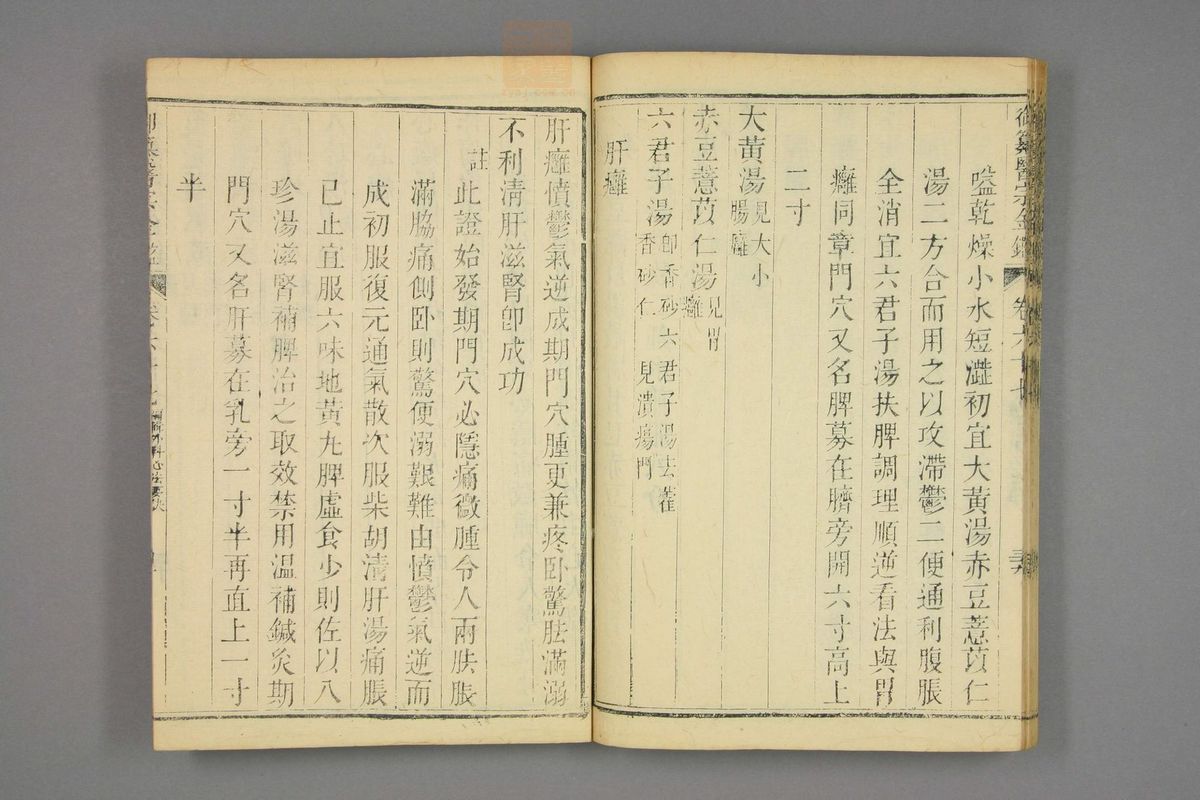 御纂醫宗金鑑 卷六十七
嗌乾燥小水短澁初宜大黃湯赤豆薏苡仁
湯二方合而用之以攻滯鬱二便通利腹脹
全消宜六君子湯扶脾調理順逆看法與胃
癰同章門穴又名脾募在臍旁開六寸高上
二寸
大黃湯見大小腸癰
赤豆薏苡仁湯見胃癰
六君子湯卽香砂六君子湯去藿香砂仁 見潰瘍門
肝癰
肝癰憤鬱氣逆成期門穴腫更兼疼卧驚胠滿溺
不利淸肝滋腎卽成功
註此證始發期門穴必隱痛微腫令人兩胠脹
滿脇痛側卧則驚便溺艱難由憤鬱氣逆而
成初服復元通氣散次服柴胡淸肝湯痛脹
已止宜服六味地黃丸脾虛食少則佐以八
珍湯滋腎補脾治之取效禁用溫補鍼灸期
門穴又名肝募在乳旁一寸半再直上一寸
半
御纂醫宗金鑑 卷六十七 編輯外科心法要訣